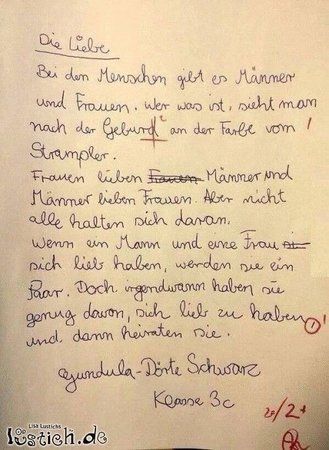 Die Liebe
Bei den Menschen gibt es Männer
und Frauen. Wer was ist, sieht man
nach der Geburd t an der Farbe vom !
Strampler.
Frauen lieben Frauen Männer und
Männer lieben Frauen. Aber nicht
alle halten sich daran.
Wenn ein Mann und eine Frau
sich lieb haben, werden sie ein
Paar. Doch irgendwann haben sie
genug davon, sich lieb zu haben !
und dann heiraten sie.
Gundula-Dörte Schwarz
Klasse 3c
2+
Lisa Lustichs
lustich.de